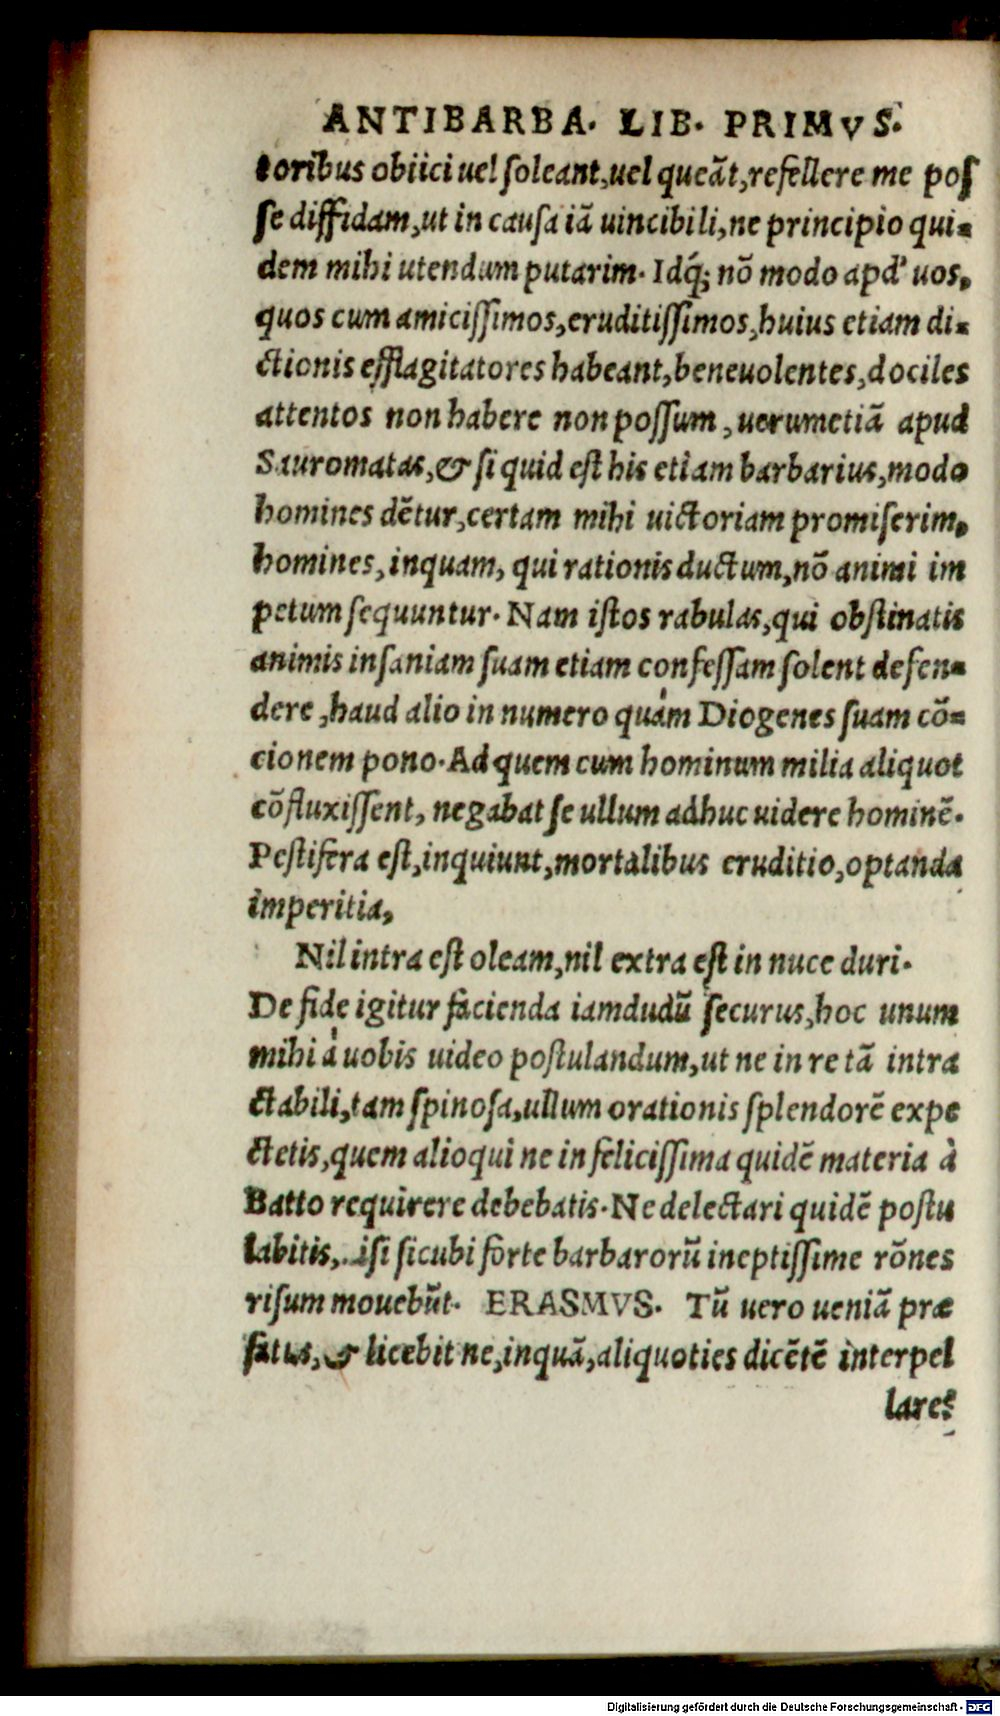 ANTIBARBA. LIB. PRIMVS.
toribus obiici uel soleant, uel queāt, refellere me pos
se diffidam, ut in causa iā uincibili, ne principio qui-
dem mihi utendum putarim. Idq́; nō modo apd' uos,
quos cum amicissimos, eruditissimos, huius etiam di-
ctionis efflagitatores habeant, beneuolentes, dociles
attentos non habere non possum, uerumetiā apud
Sauromatas, & si quid est his etiam barbarius, modo
homines dētur, certam mihi uictoriam promiserim,
homines, inquam, qui rationis ductum, nō animi im
petum sequuntur. Nam istos rabulas, qui obstinatis
animis insaniam suam etiam confessam solent defen-
dere, haud alio in numero quàm Diogenes suam cō-
cionem pono. Ad quem cum hominum milia aliquot
cōfluxissent, negabat se ullum adhuc uidere hominē.
Pestifera est, inquiunt, mortalibus eruditio, optanda
imperitia,
Nil intra est oleam, nil extra est in nuce duri.
De fide igitur facienda iamdudū securus, hoc unum
mihi à uobis uideo postulandum, ut ne in re tā intra
ctabili, tam spinosa, ullum orationis splendorē expe
ctetis, quem alioqui ne in felicissima quidē materia à
Batto requirere debebatis. Ne delectari quidē postu
labitis, isi sicubi forte barbarorū ineptissime rōnes
risum mouebūt. ERASMVS. Tū uero ueniā præ
fatus, & licebit ne, inquā, aliquoties dicētē interpel
lare?
Digitalisierung gefördert durch die Deutsche Forschungsgemeinschaft - DFG